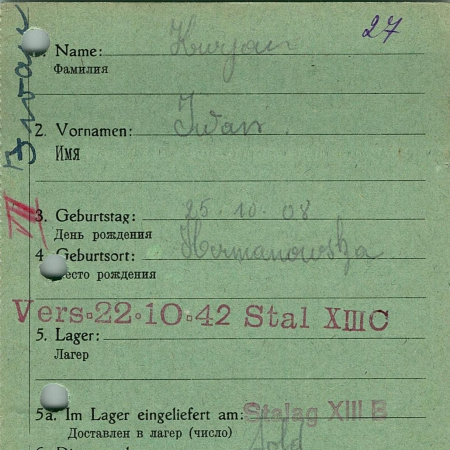 27
1. Name: Kurjan
Фамилия
2. Vornamen: Iwan
Имя
3. Geburtstag: 25.10.08
День рождения
4. Geburtsort: Hermanowska
Место рождения
Vers.22.10.42 Stal XIII C
5. Lager:
Лагерь
5a. Im Lager eingeliefert am: Stalag XIII B
Доставлен в лагерь (число)